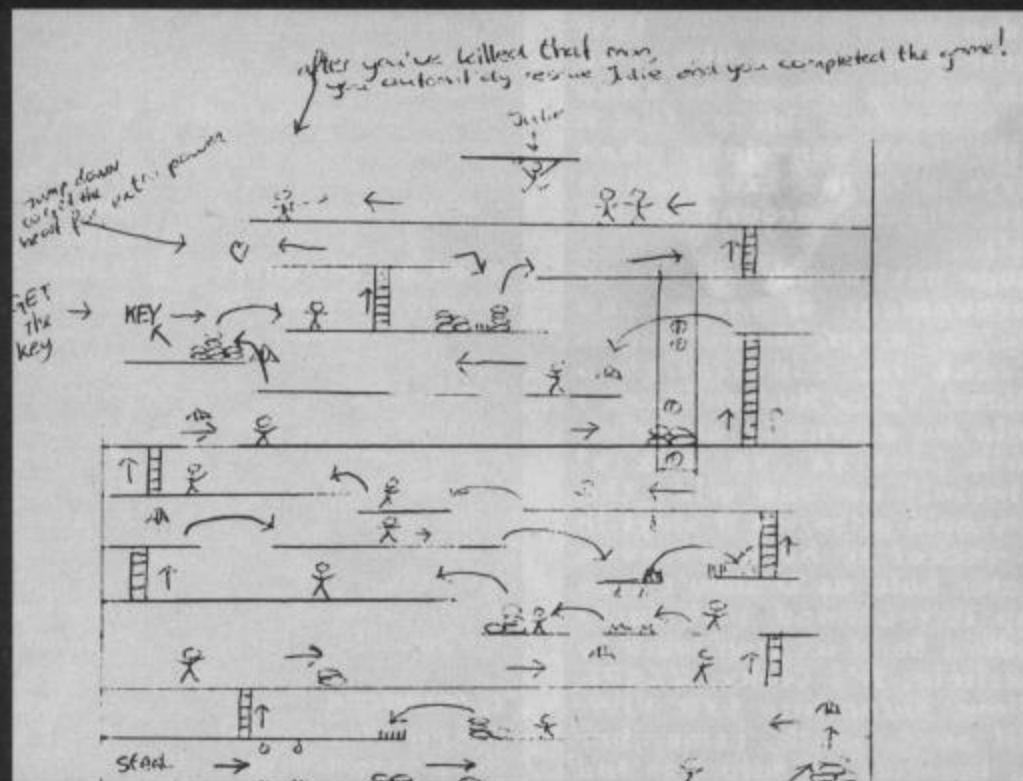 after you've killed that man,
you automaticly rescue Julie and you completed the game!
Julie
Jump down
collect the
heart for extra power
GET
the
key
KEY
Start